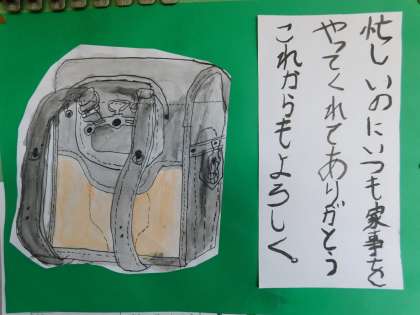 忙しいのにいつも家事を
やってくれてありがとう
これからもよろしく。